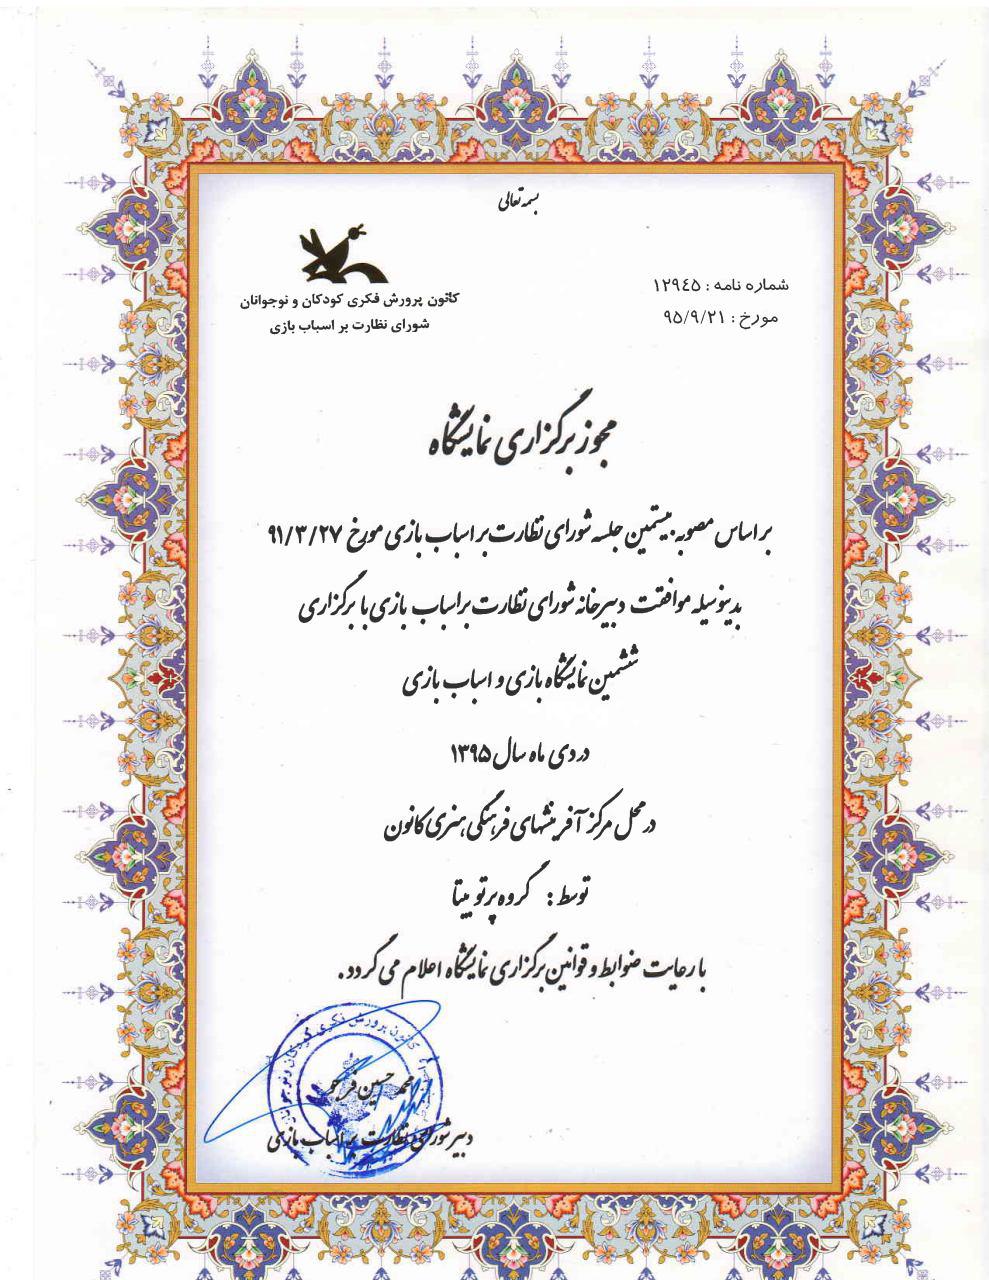 بسمه تعالی
شماره نامه : ١٢٩٤٥
مورخ : ٩٥/٩/٢١
کانون پرورش فکری کودکان و نوجوانان
شورای نظارت بر اسباب بازی
مجوز برگزاری نمایشگاه
بر اساس مصوبه بیستمین جلسه شورای نظارت بر اسباب بازی مورخ ۹۱/۳/۲۷
بدینوسیله موافقت دبیرخانه شورای نظارت بر اسباب بازی با برگزاری
ششمین نمایشگاه بازی و اسباب بازی
در دی ماه سال ۱۳۹۵
در محل مرکز آفرینشهای فرهنگی هنری کانون
توسط : گروه پرتو بیتا
با رعایت ضوابط و قوانین برگزاری نمایشگاه اعلام می گردد.
کانون پرورش فکری کودکان و نوجوانان
محمد حسین فرجو
دبیر شورای نظارت بر اسباب بازی